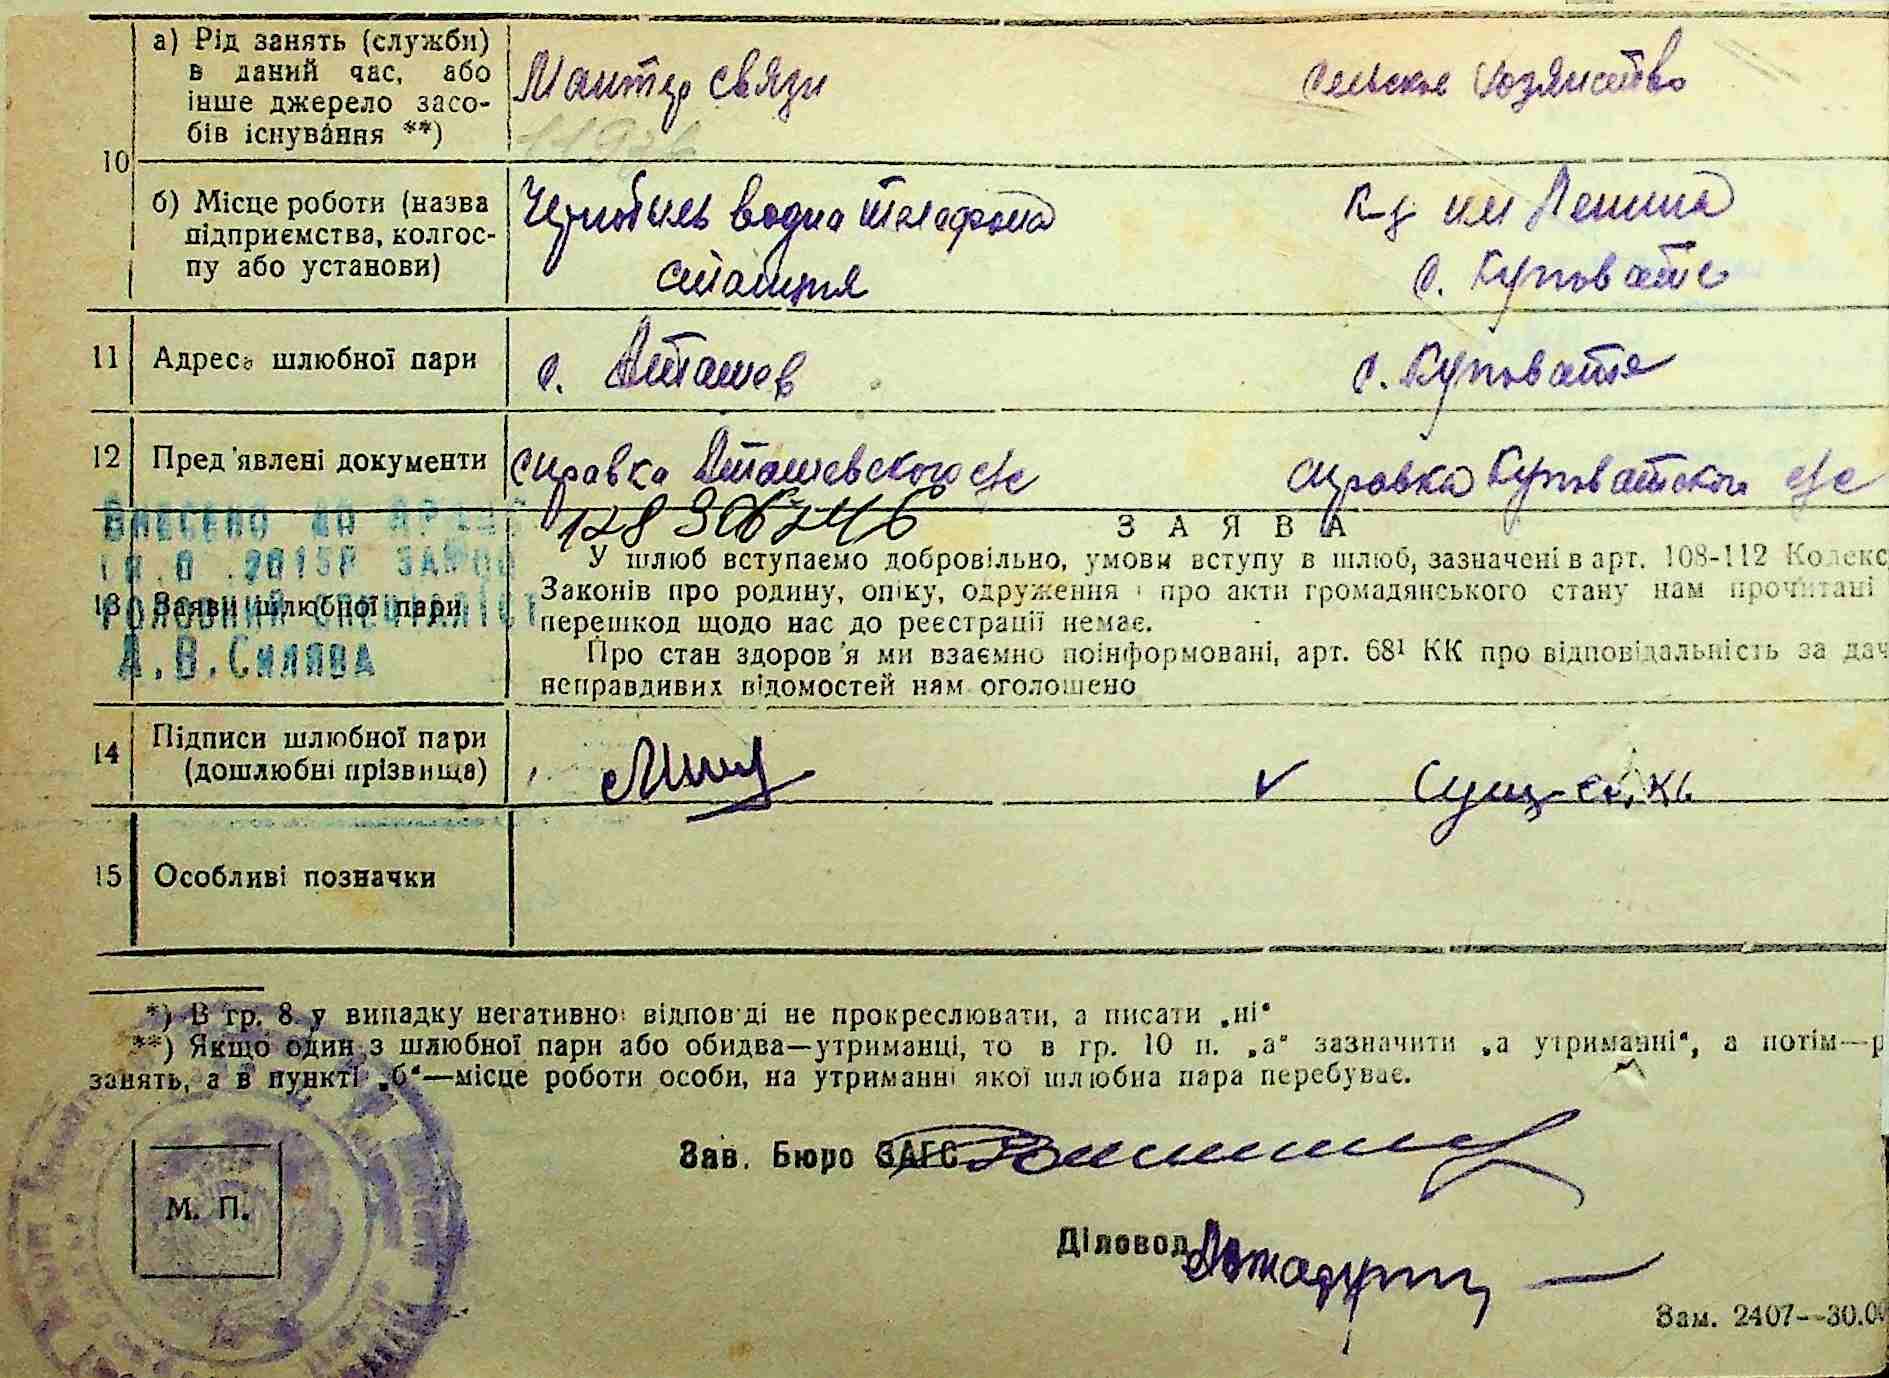 10
а) Рід занять (служби)
в даний час, або
інше джерело засо-
бів існування **)
Монтер связи
Сельское хозяйство
б) Місце роботи (назва
підприємства, колгос-
пу або установи)
Чернобыль водна телефона
станция
К-з им Ленина
с. Куповате
11 Адреса шлюбної пари
с. Опашев
с. Куповате
12 Пред'явлені документи
справка Опашевского с/с
справка Куповатского с/с
128
ВНЕСЕНО ДО
2015Р
ГОЛОВНИЙ СПЕЦІАЛІСТ
А.В.СИЛЯВА
13 Заяви шлюбної пари
ЗАЯВА
У шлюб вступаємо добровільно, умови вступу в шлюб, зазначені в арт. 108-112 Кодекс
Законів про родину, опіку, одруження і про акти громадянського стану нам прочитані
перешкод щодо нас до реєстрації немає.
Про стан здоров'я ми взаємно поінформовані, арт. 68¹ КК про відповідальність за дач
неправдивих відомостей нам оголошено
14 Підписи шлюбної пари
(дошлюбні прізвища)
15 Особливі позначки
*) В гр. 8 у випадку негативної відповіді не прокреслювати, а писати „ні“
**) Якщо один з шлюбної пари або обидва—утриманці, то в гр. 10 п. „а“ зазначити „а утриманні“, а потім—р
занять, а в пункті „б“—місце роботи особи, на утриманні якої шлюбна пара перебуває.
М. П.
Зав. Бюро ЗАГС
Діловод
Зам. 2407—30.00